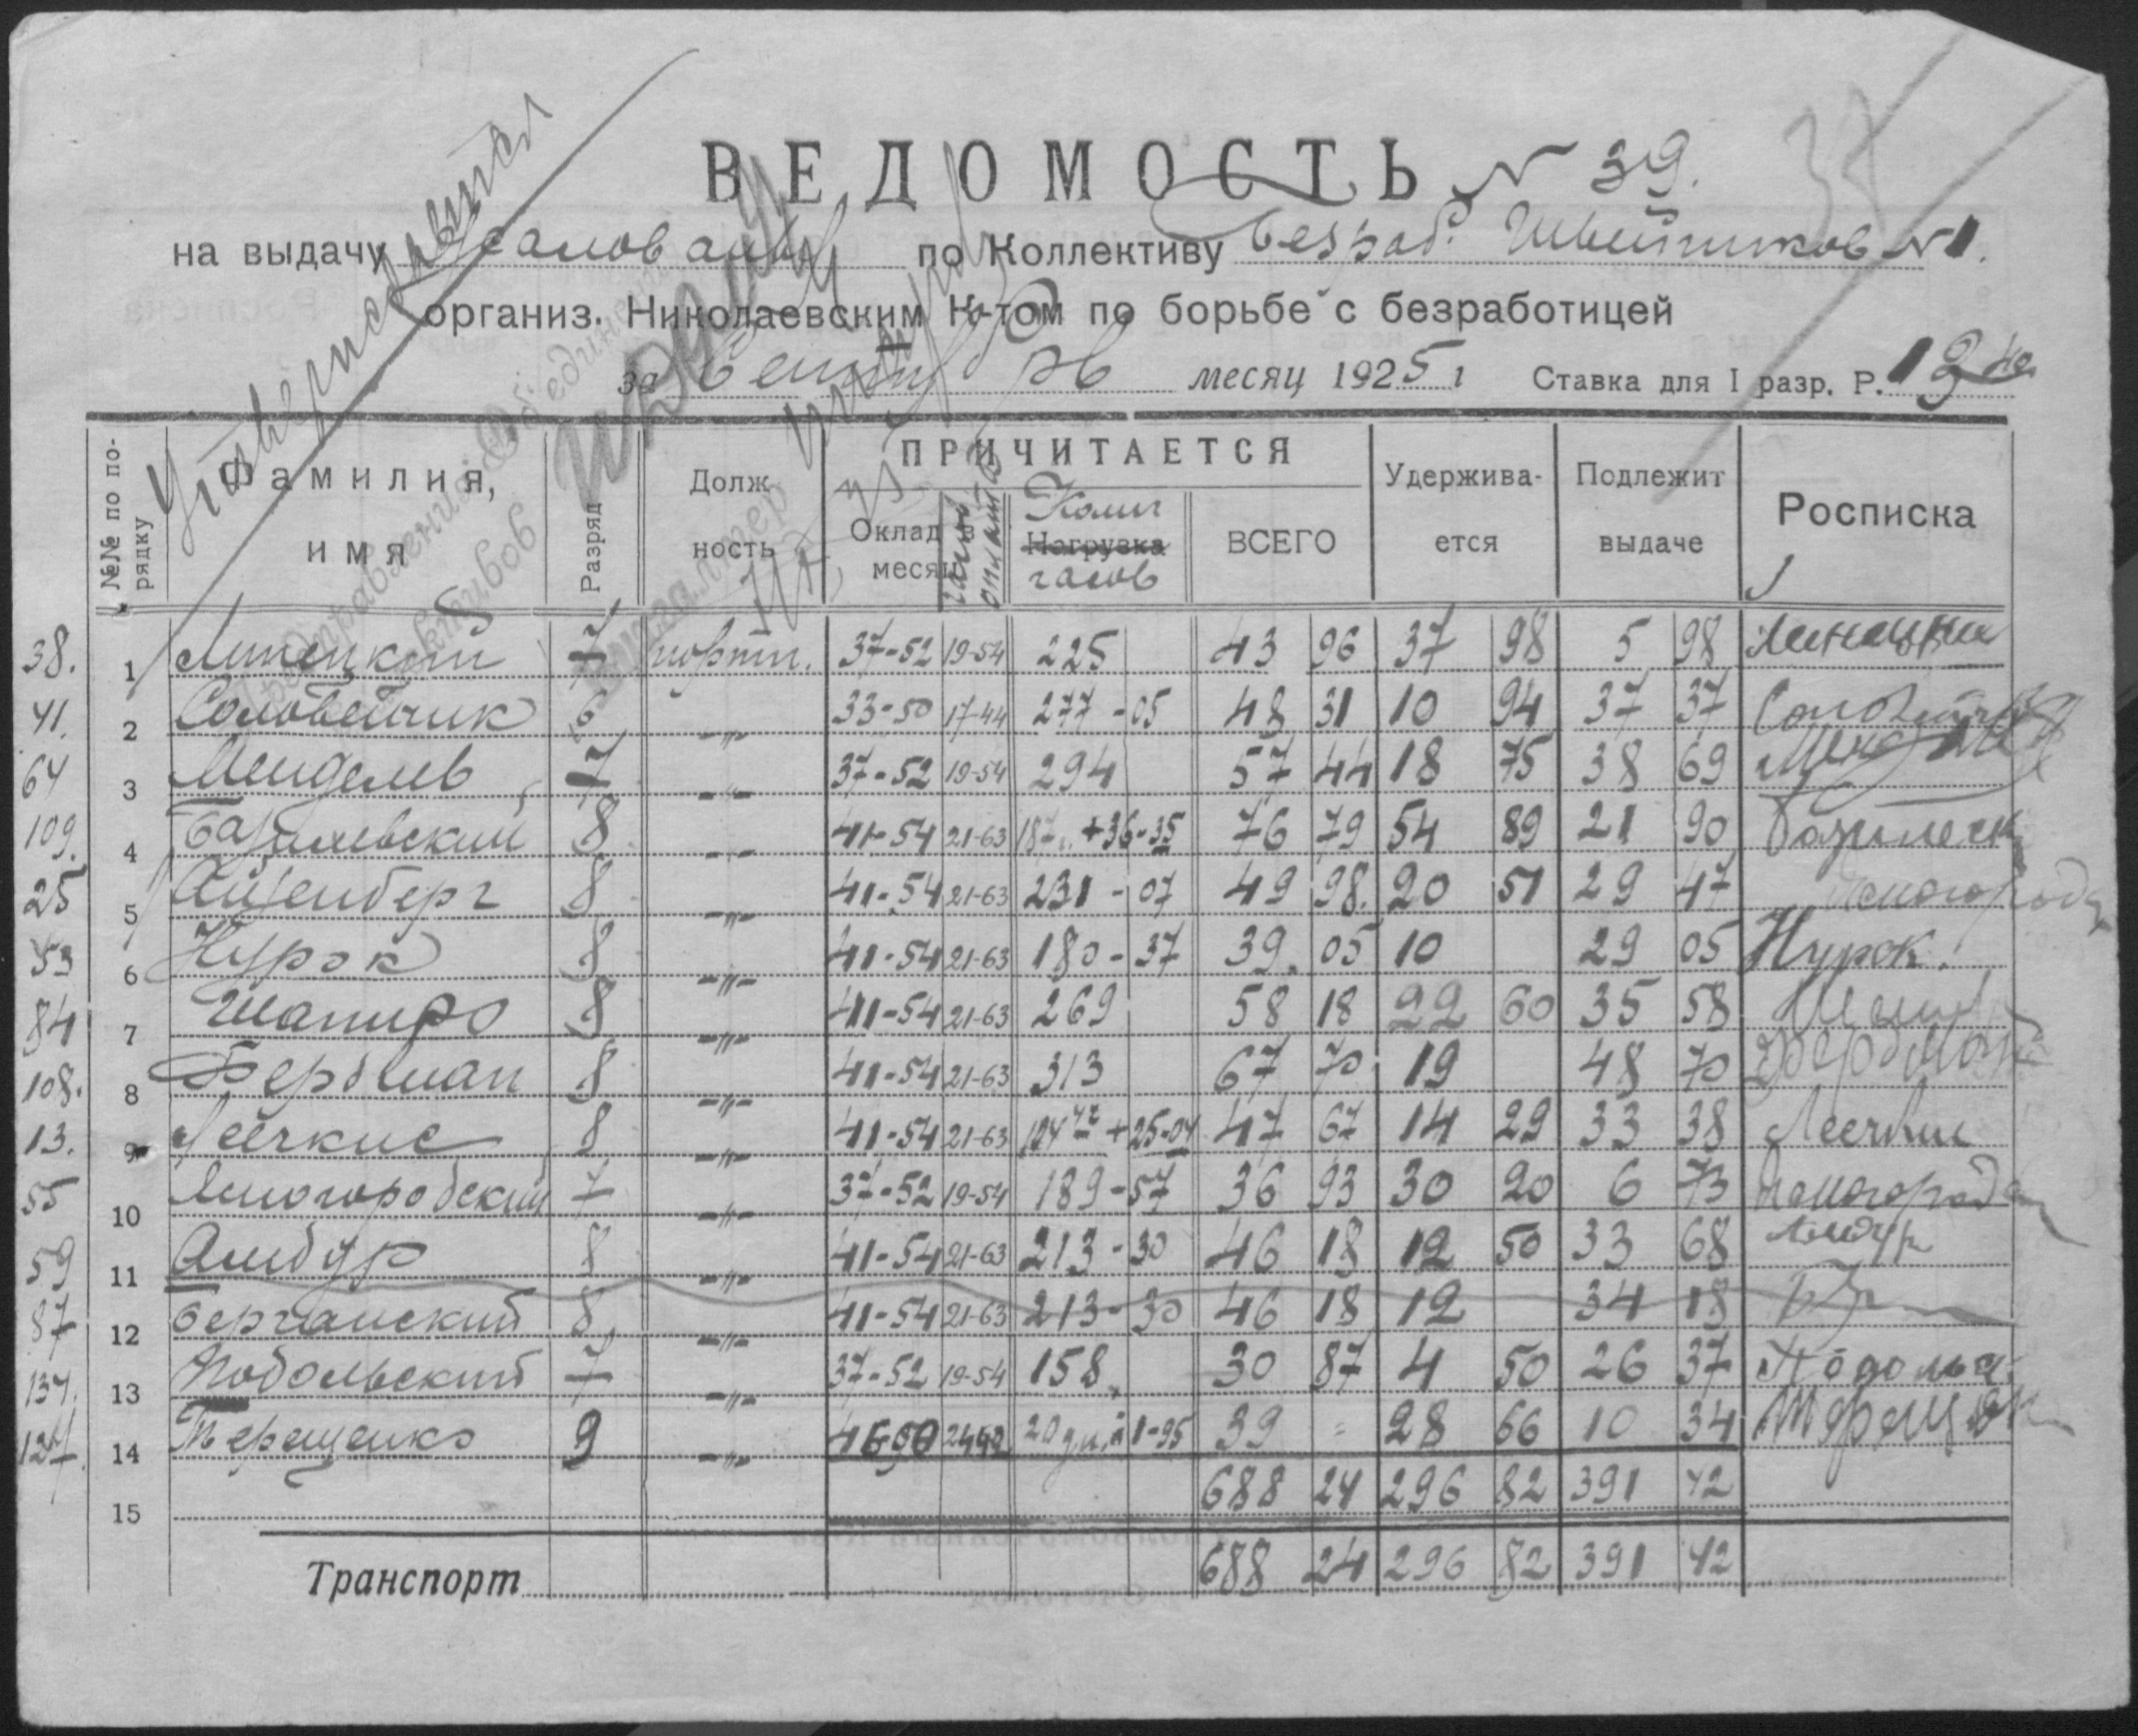 ВЕДОМОСТЬ N 39.
на выдачу жалованья по Коллективу безраб. Швейников N1.
организ. Николаевским К-том по борьбе с безработицей
за Сентябрь месяц 1925 г Ставка для I разр. Р. 12
№№ по по-рядку Фамилия, имя Разряд Должность ПРИЧИТАЕТСЯ Удерживается Подлежит выдаче Росписка
Оклад в месяц Колич Нагрузка часов ВСЕГО
38. 1 Липецкий 7 портн. 37-52 19-54 225 43 96 37 98 5 98 Липецкий
41. 2 Соловейчик 6 -"- 33-50 17-44 277-05 48 31 10 94 37 37
64 3 Менделев 7 -"- 37-52 19-54 294 57 44 18 75 38 69
109. 4 Базилевский 8 -"- 41-54 21-63 187 +36-35 76 79 54 89 21 90
25 5 Айзенберг 8 -"- 41-54 21-63 231-07 49 98. 20 51 29 47
53 6 Нурок 8 -"- 41-54 21-63 180-37 39. 05 10 29 05 Нурок.
84 7 Шапиро 8 -"- 41-54 21-63 269 58 18 22 60 35 58
108. 8 Фербман 8 -"- 41-54 21-63 313 67 70 19 48 70 Фербман
13. 9 Леечкис 8 -"- 41-54 21-63 124 42 +25-04 47 67 14 29 33 38 Леечкис
55 10 Ясногородский 7 -"- 37-52 19-54 189-57 36 93 30 20 6 73
59 11 Амбур 8 -"- 41-54 21-63 213-30 46 18 12 50 33 68 Амбур
87 12 Берганский 8 -"- 41-54 21-63 213-30 46 18 12 34 18
137. 13 Подольский 7 -"- 37-52 19-54 158 30 87 4 50 26 37
127. 14 Терещенко 9 -"- 20 дн. а 1-95 39 = 28 66 10 34
15 688 24 296 82 391 42
Транспорт 688 24 296 82 391 42